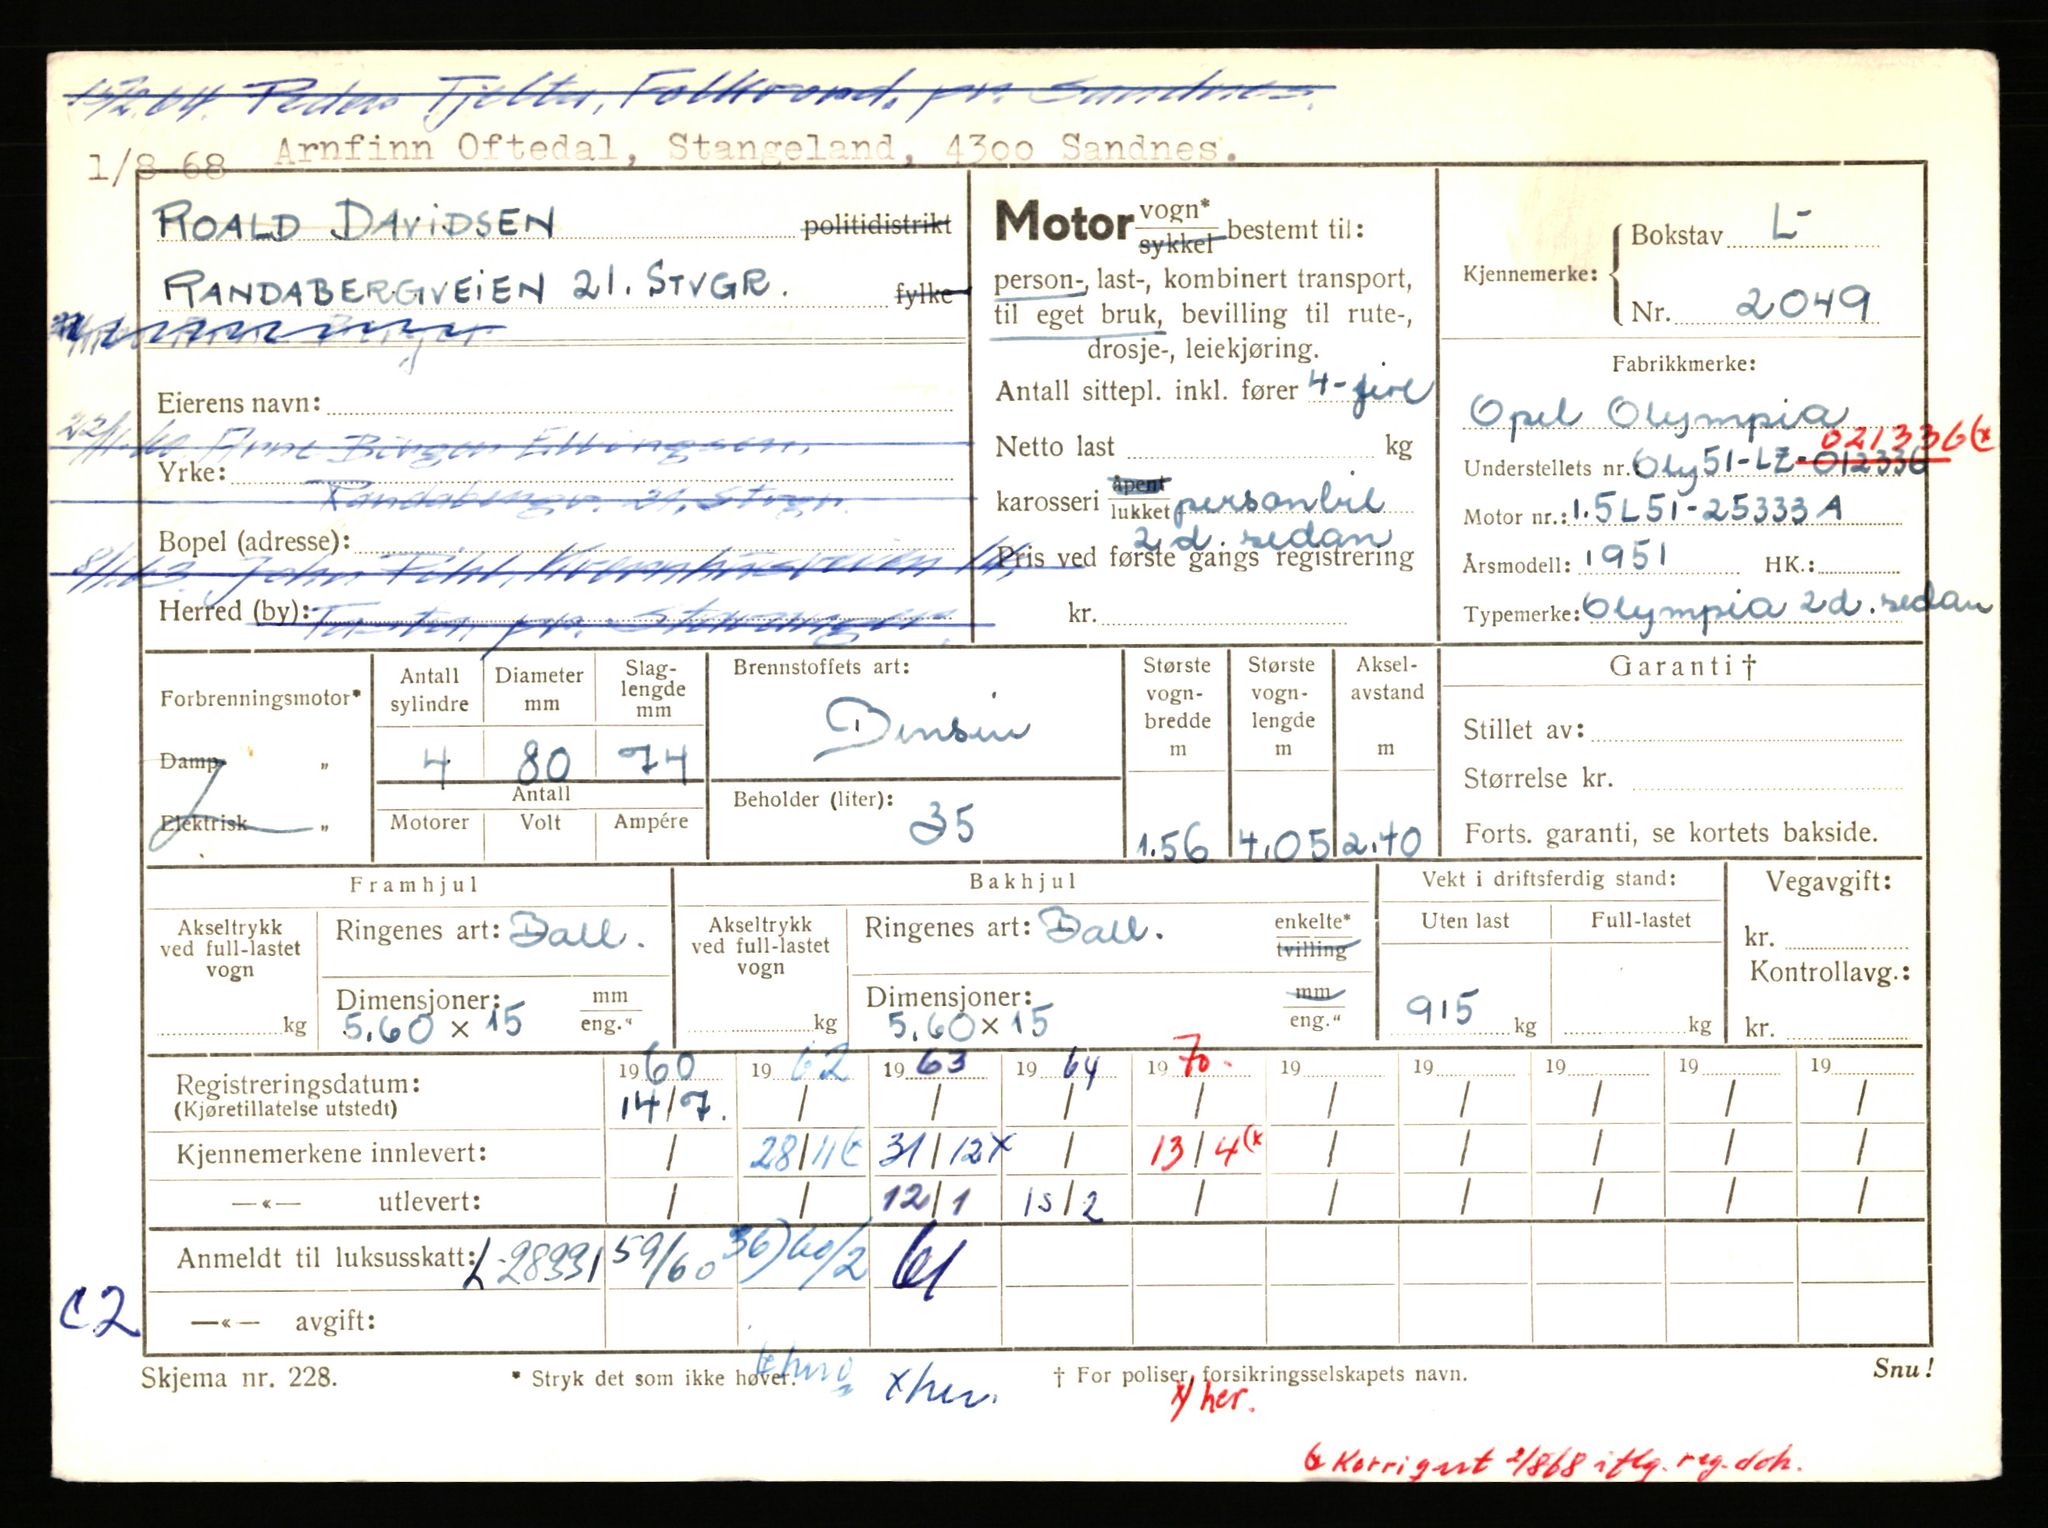 15/2.64. Peder Tjelta, Folkvord, pr. Sandnes.
1/8-68 Arnfinn Oftedal, Stangeland, 4300 Sandnes.
ROALD DAVIDSEN politidistrikt
RANDABERGVEIEN 21. STVGR. fylke
Eierens navn:
22/11.60 Arne Birger Ellingsen,
Yrke:
Randabergv. 21, Stvgr.
Bopel (adresse):
8/1.63. John
Herred (by): Tasta, pr. Stavanger.
Motor vogn* sykkel bestemt til:
person-, last-, kombinert transport,
til eget bruk, bevilling til rute-,
drosje-, leiekjøring.
Antall sittepl. inkl. fører 4-fire
Netto last kg
karosseri åpent lukket personbil
2 d. sedan
Pris ved første gangs registrering
kr.
Kjennemerke: Bokstav L-
Nr. 2049
Fabrikkmerke:
Opel Olympia
021336 (x
Understellets nr. Oly51-LZ-012336
Motor nr.: 1.5L51-25333A
Årsmodell: 1951 HK.:
Typemerke: Olympia 2d. sedan
Forbrenningsmotor*
Damp „
Elektrisk „
Antall sylindre Diameter mm Slaglengde mm
4 80 74
Antall
Motorer Volt Ampére
Brennstoffets art:
Bensin
Beholder (liter):
35
Største vogn-bredde m Største vogn-lengde m Aksel-avstand m
1.56 4.05 2.40
Garanti †
Stillet av:
Størrelse kr.
Forts. garanti, se kortets bakside.
Framhjul
Akseltrykk ved full-lastet vogn
kg
Ringenes art: Ball.
Dimensjoner: mm eng."
5.60 x 15
Bakhjul
Akseltrykk ved full-lastet vogn
kg
Ringenes art: Ball. enkelte* tvilling
Dimensjoner: mm eng."
5.60 x 15
Vekt i driftsferdig stand:
Uten last Full-lastet
915 kg kg
Vegavgift:
kr.
Kontrollavg.:
kr.
1960 1962 1963 1964 1970. 19 19 19 19 19
Registreringsdatum: 14/7. / / / / / / / / /
(Kjøretillatelse utstedt)
Kjennemerkene innlevert: / 28/11(x 31/12x / 13/4(x / / / / /
—«— utlevert: / / 12/1 15/2 / / / / / /
Anmeldt til luksusskatt: L-28331 59/60 36) 60/2 61
C2
—«— avgift:
Skjema nr. 228. * Stryk det som ikke høver. † For poliser, forsikringsselskapets navn. Snu!
x/her.
x/her.
(x Korrigert 2/868 iflg. reg. dok.